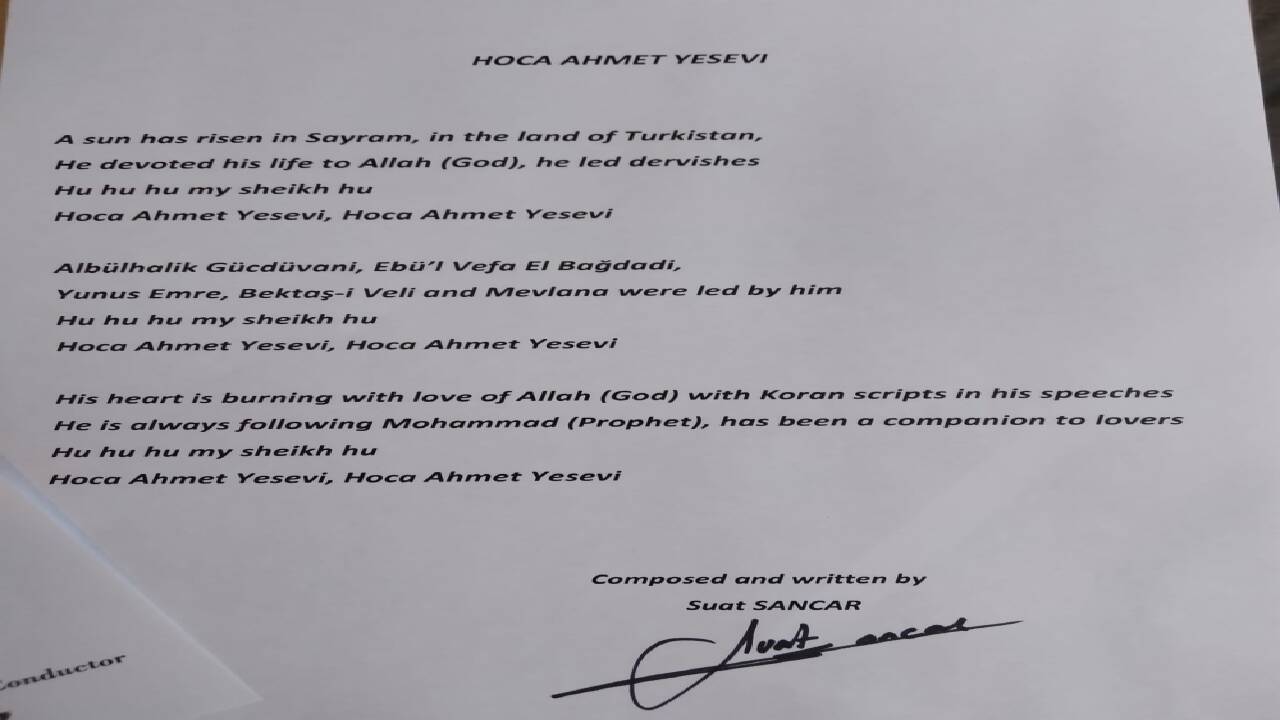 HOCA AHMET YESEVI
A sun has risen in Sayram, in the land of Turkistan,
He devoted his life to Allah (God), he led dervishes
Hu hu hu my sheikh hu
Hoca Ahmet Yesevi, Hoca Ahmet Yesevi
Albülhalik Gücdüvani, Ebü’l Vefa El Bağdadi,
Yunus Emre, Bektaş-i Veli and Mevlana were led by him
Hu hu hu my sheikh hu
Hoca Ahmet Yesevi, Hoca Ahmet Yesevi
His heart is burning with love of Allah (God) with Koran scripts in his speeches
He is always following Mohammad (Prophet), has been a companion to lovers
Hu hu hu my sheikh hu
Hoca Ahmet Yesevi, Hoca Ahmet Yesevi
Composed and written by
Suat SANCAR
Suat Sancar
Conductor